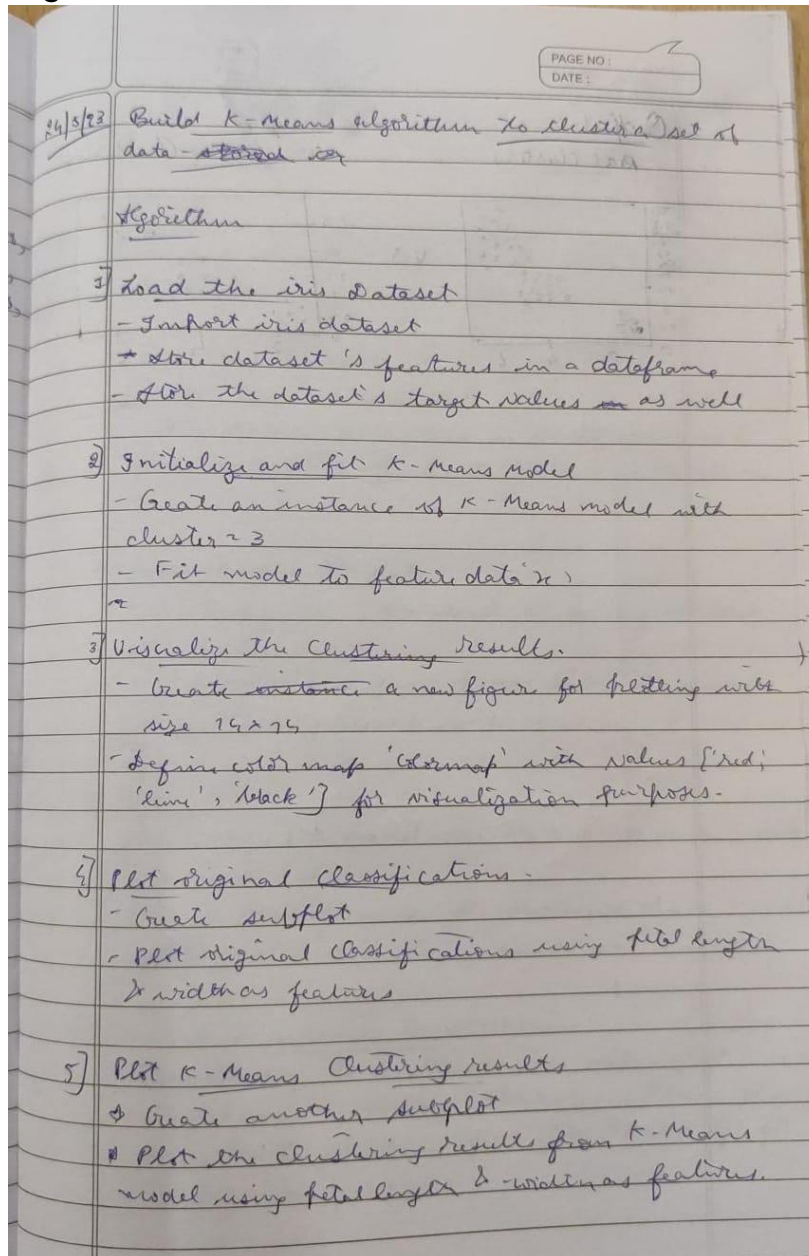 PAGE NO :
DATE :
24/5/23 Build K-Means algorithm to cluster a set of
data - stored in
Algorithm
1] Load the iris Dataset
- Import iris dataset
- Store dataset's features in a dataframe
- Store the dataset's target values as well
2] Initialize and fit K-Means Model
- Create an instance of K-Means model with
cluster = 3
- Fit model to feature data x
3] Visualize the Clustering results.
- Create instance a new figure for plotting with
size 14 x 14
- Define color map 'Colormap' with values ['red',
'lime', 'black'] for visualization purposes.
4] Plot original classifications.
- Create subplot
- Plot original classifications using petal length
& width as features
5] Plot K-Means Clustering results
Create another subplot
Plot the clustering results from K-Means
model using petal length & width as features.